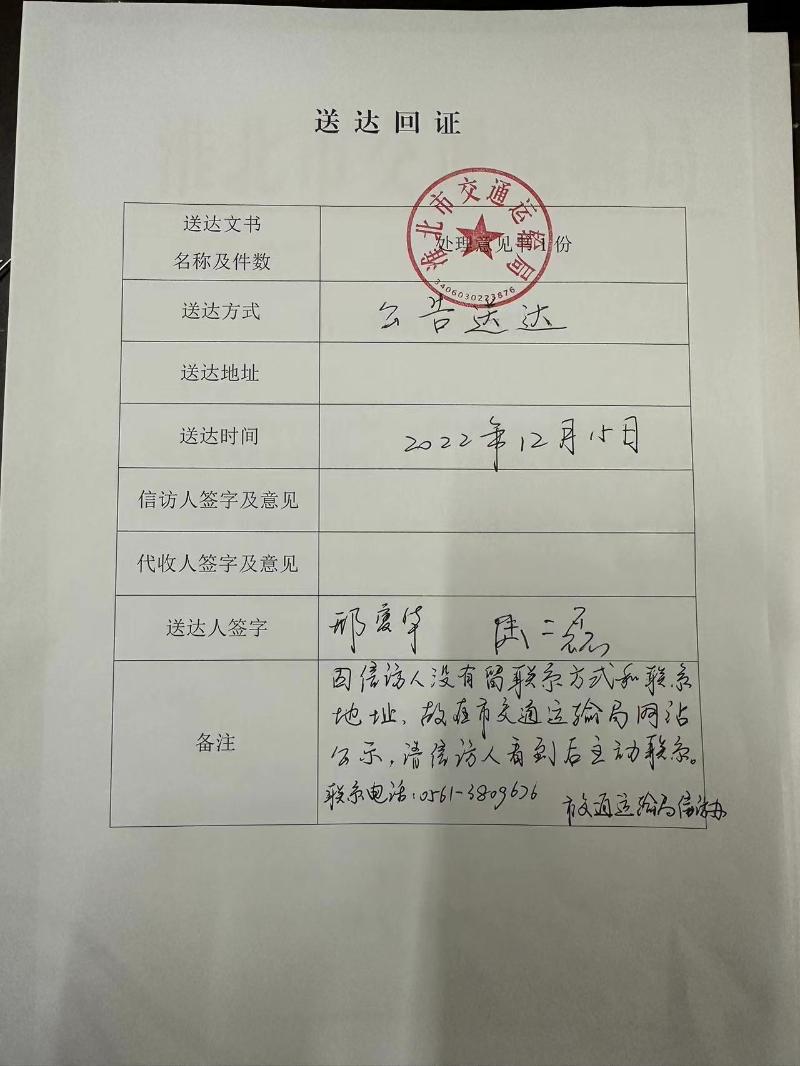 送达回证
淮北市交通运输局
3406030273876
送达文书
名称及件数
处理意见书1份
送达方式
公告送达
送达地址
送达时间
2022年12月15日
信访人签字及意见
代收人签字及意见
送达人签字
备注
因信访人没有留联系方式和联系
地址、故在市交通运输局网站
公示,请信访人看到后主动联系。
联系电话:0561-3809636
市交通运输局信访办